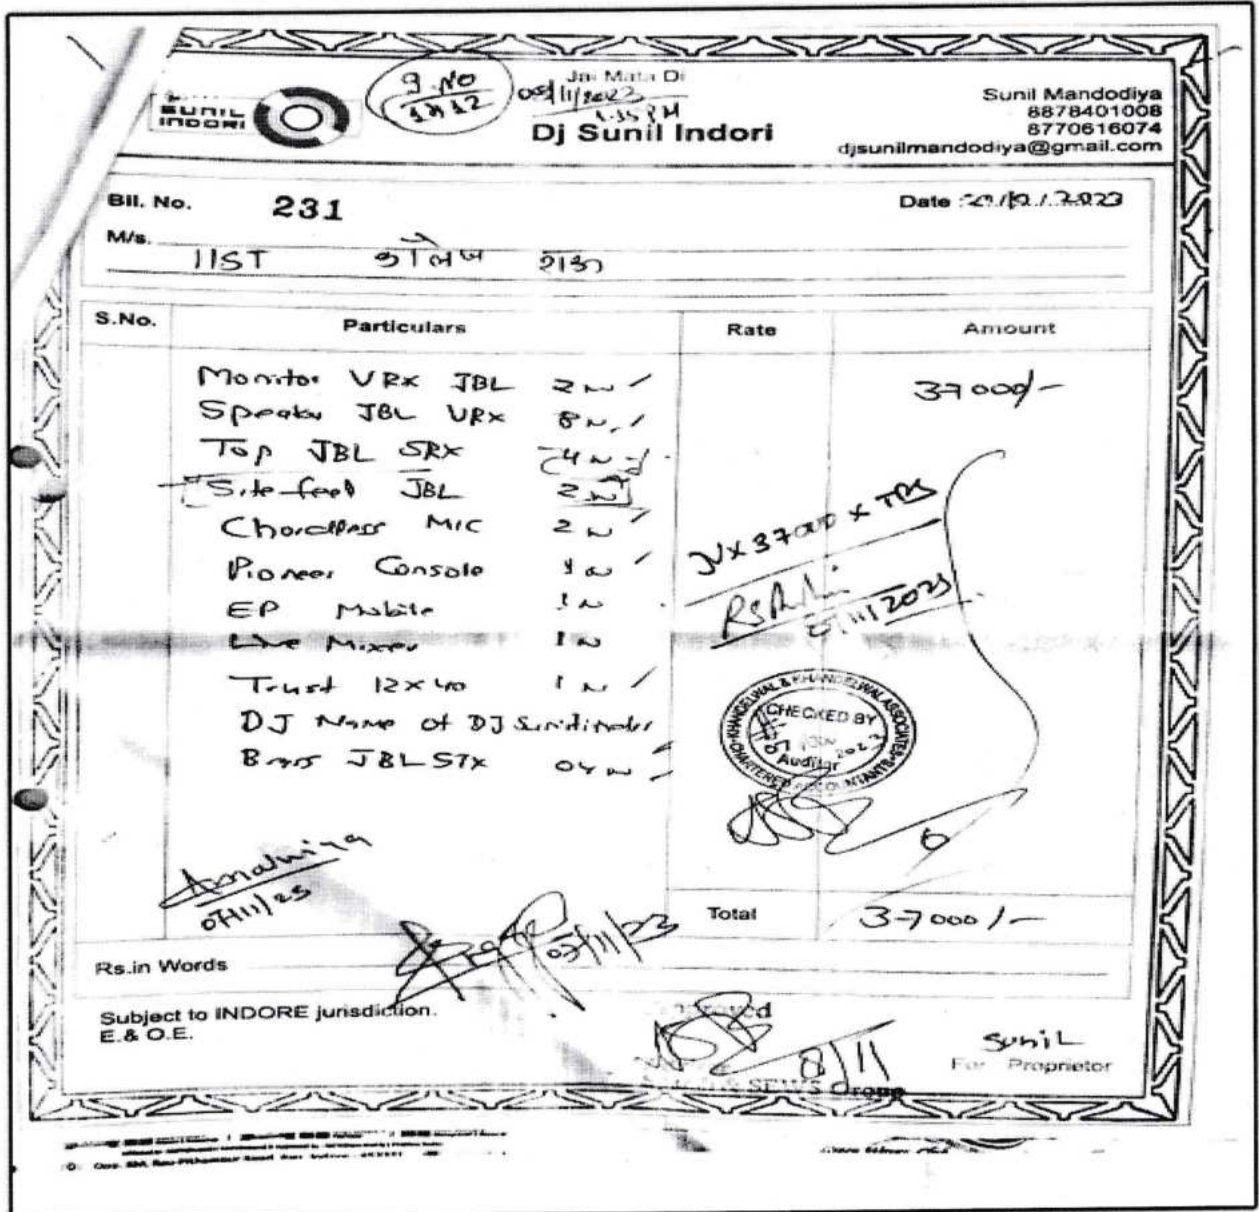 SUNIL
INDORI
Jai Mata Di
Dj Sunil Indori
Sunil Mandodiya
8878401008
8770616074
djsunilmandodiya@gmail.com
Bil. No. 231
Date : /2023
M/s. IIST कॉलेज राऊ
S.No. Particulars Rate Amount
Monitor VRX JBL 2 N 37000/-
Speaker JBL VRX 8 N
Top JBL SRX 4 N
Site feel JBL 2 N
Chordless MIC 2 N
Pioneer Console 1 N
EP Mobile 1 N
Live Mixer 1 N
Trust 12x40 1 N
DJ Name of DJ Sunil Indori
Bass JBL STX 04 N
37000 x TDS
/11/2023
KHANDELWAL & KHANDELWAL ASSOCIATES
CHECKED BY
Auditor
CHARTERED ACCOUNTANTS
07/11/23
Total 37000/-
Rs.in Words
Subject to INDORE jurisdiction.
E.& O.E.
Approved
8/11
SUNIL
For Proprietor